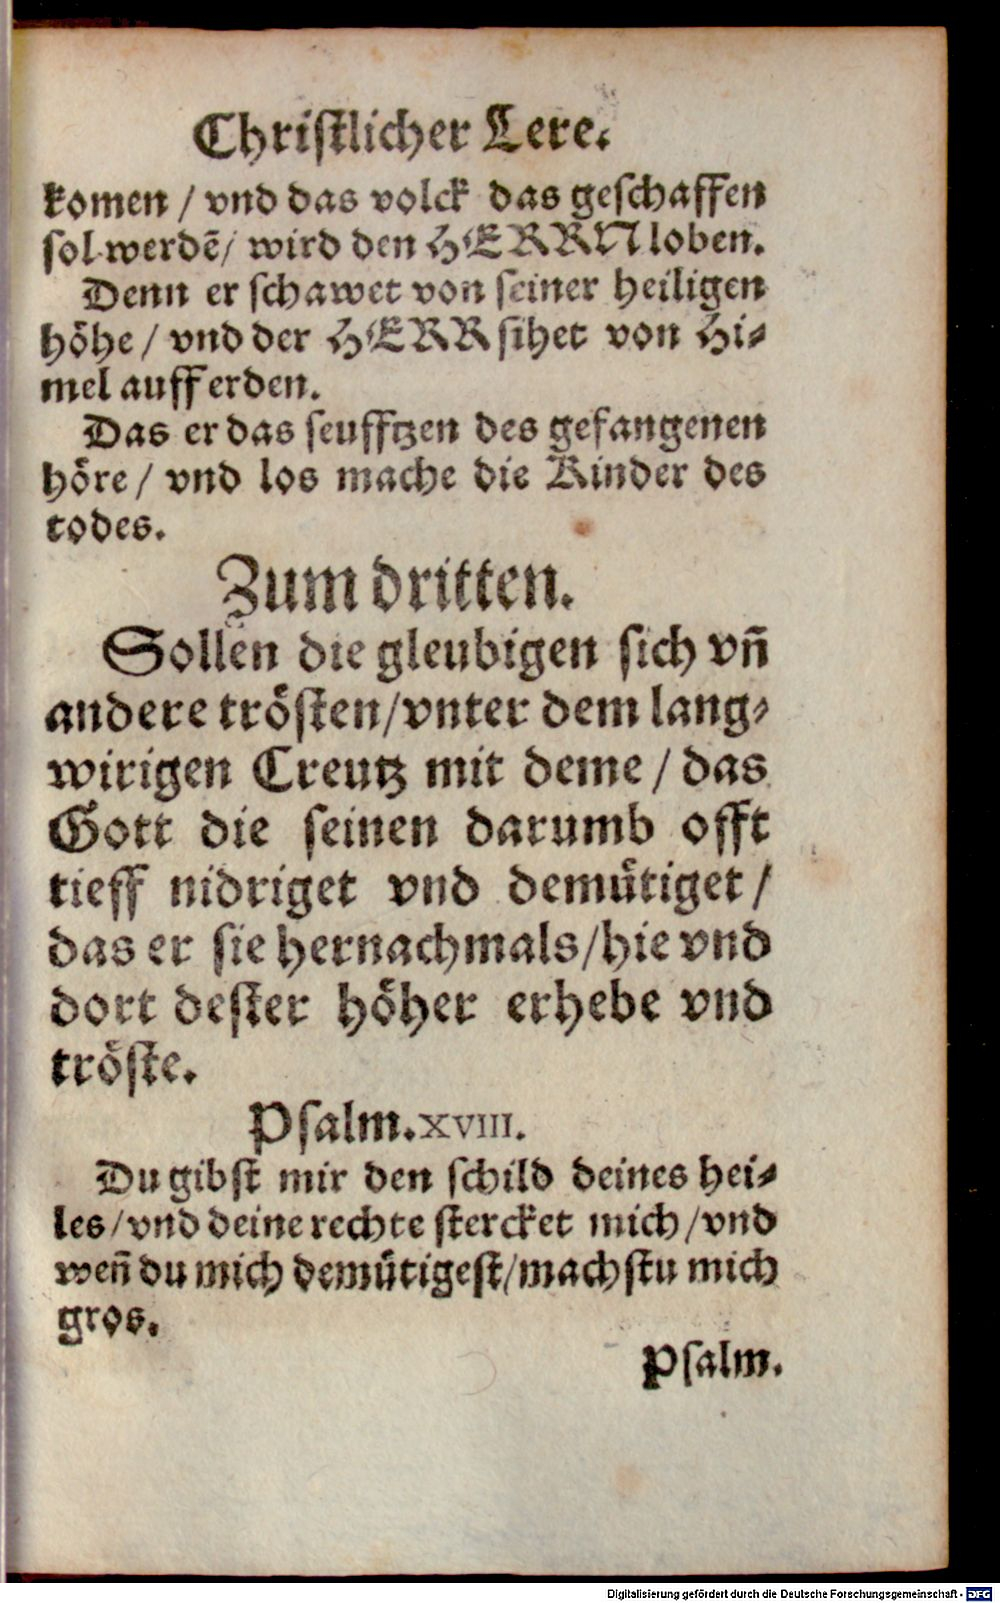 Christlicher Lere.
komen / vnd das volck das geschaffen
sol werdē / wird den HERRN loben.
Denn er schawet von seiner heiligen
höhe / vnd der HERR sihet von Hi-
mel auff erden.
Das er das seufftzen des gefangenen
höre / vnd los mache die Kinder des
todes.
Zum dritten.
Sollen die gleubigen sich vn̄
andere trösten / vnter dem lang-
wirigen Creutz mit deme / das
Gott die seinen darumb offt
tieff nidriget vnd demütiget /
das er sie hernachmals / hie vnd
dort dester höher erhebe vnd
tröste.
Psalm. XVIII.
Du gibst mir den schild deines hei-
les / vnd deine rechte stercket mich / vnd
wen̄ du mich demütigest / machstu mich
gros.
Psalm.
Digitalisierung gefördert durch die Deutsche Forschungsgemeinschaft - DFG